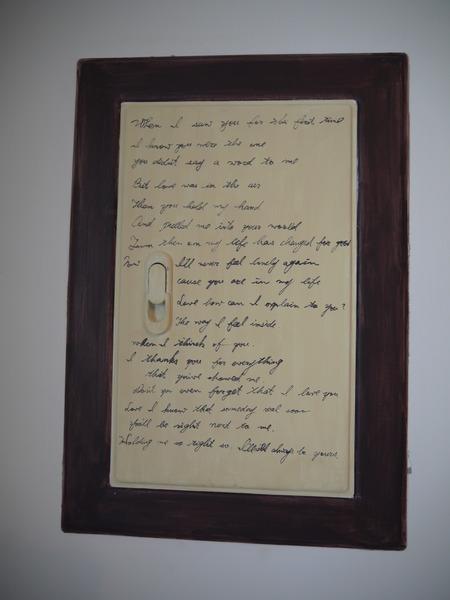 When I saw you for the first time
I knew you were the one
you didn't say a word to me
But love was in the air
Then you held my hand
And pulled me into your world
From then on my life has changed for good
Now I'll never feel lonely again
cause you are in my life
Love how can I explain to you?
The way I feel inside
when I think of you.
I thank you for everything
that you've showed me
Don't you ever forget that I love you
Love I know that someday real soon
You'll be right next to me.
Holding me so right so I'll always be yours.